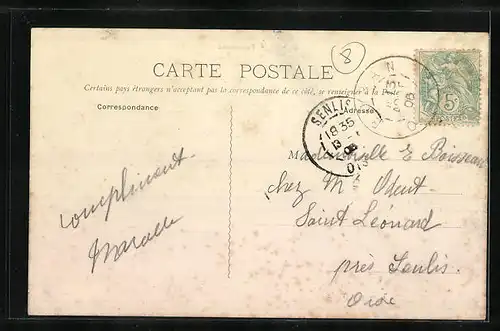 8
CARTE POSTALE
Certains pays étrangers n'acceptant pas la correspondance de ce côté, se renseigner à la Poste
Correspondance
Adresse
SENLIS
18 35
5
Mademoiselle E Boisseau
chez M
Saint Léonard
près Senlis
Oise
compliment